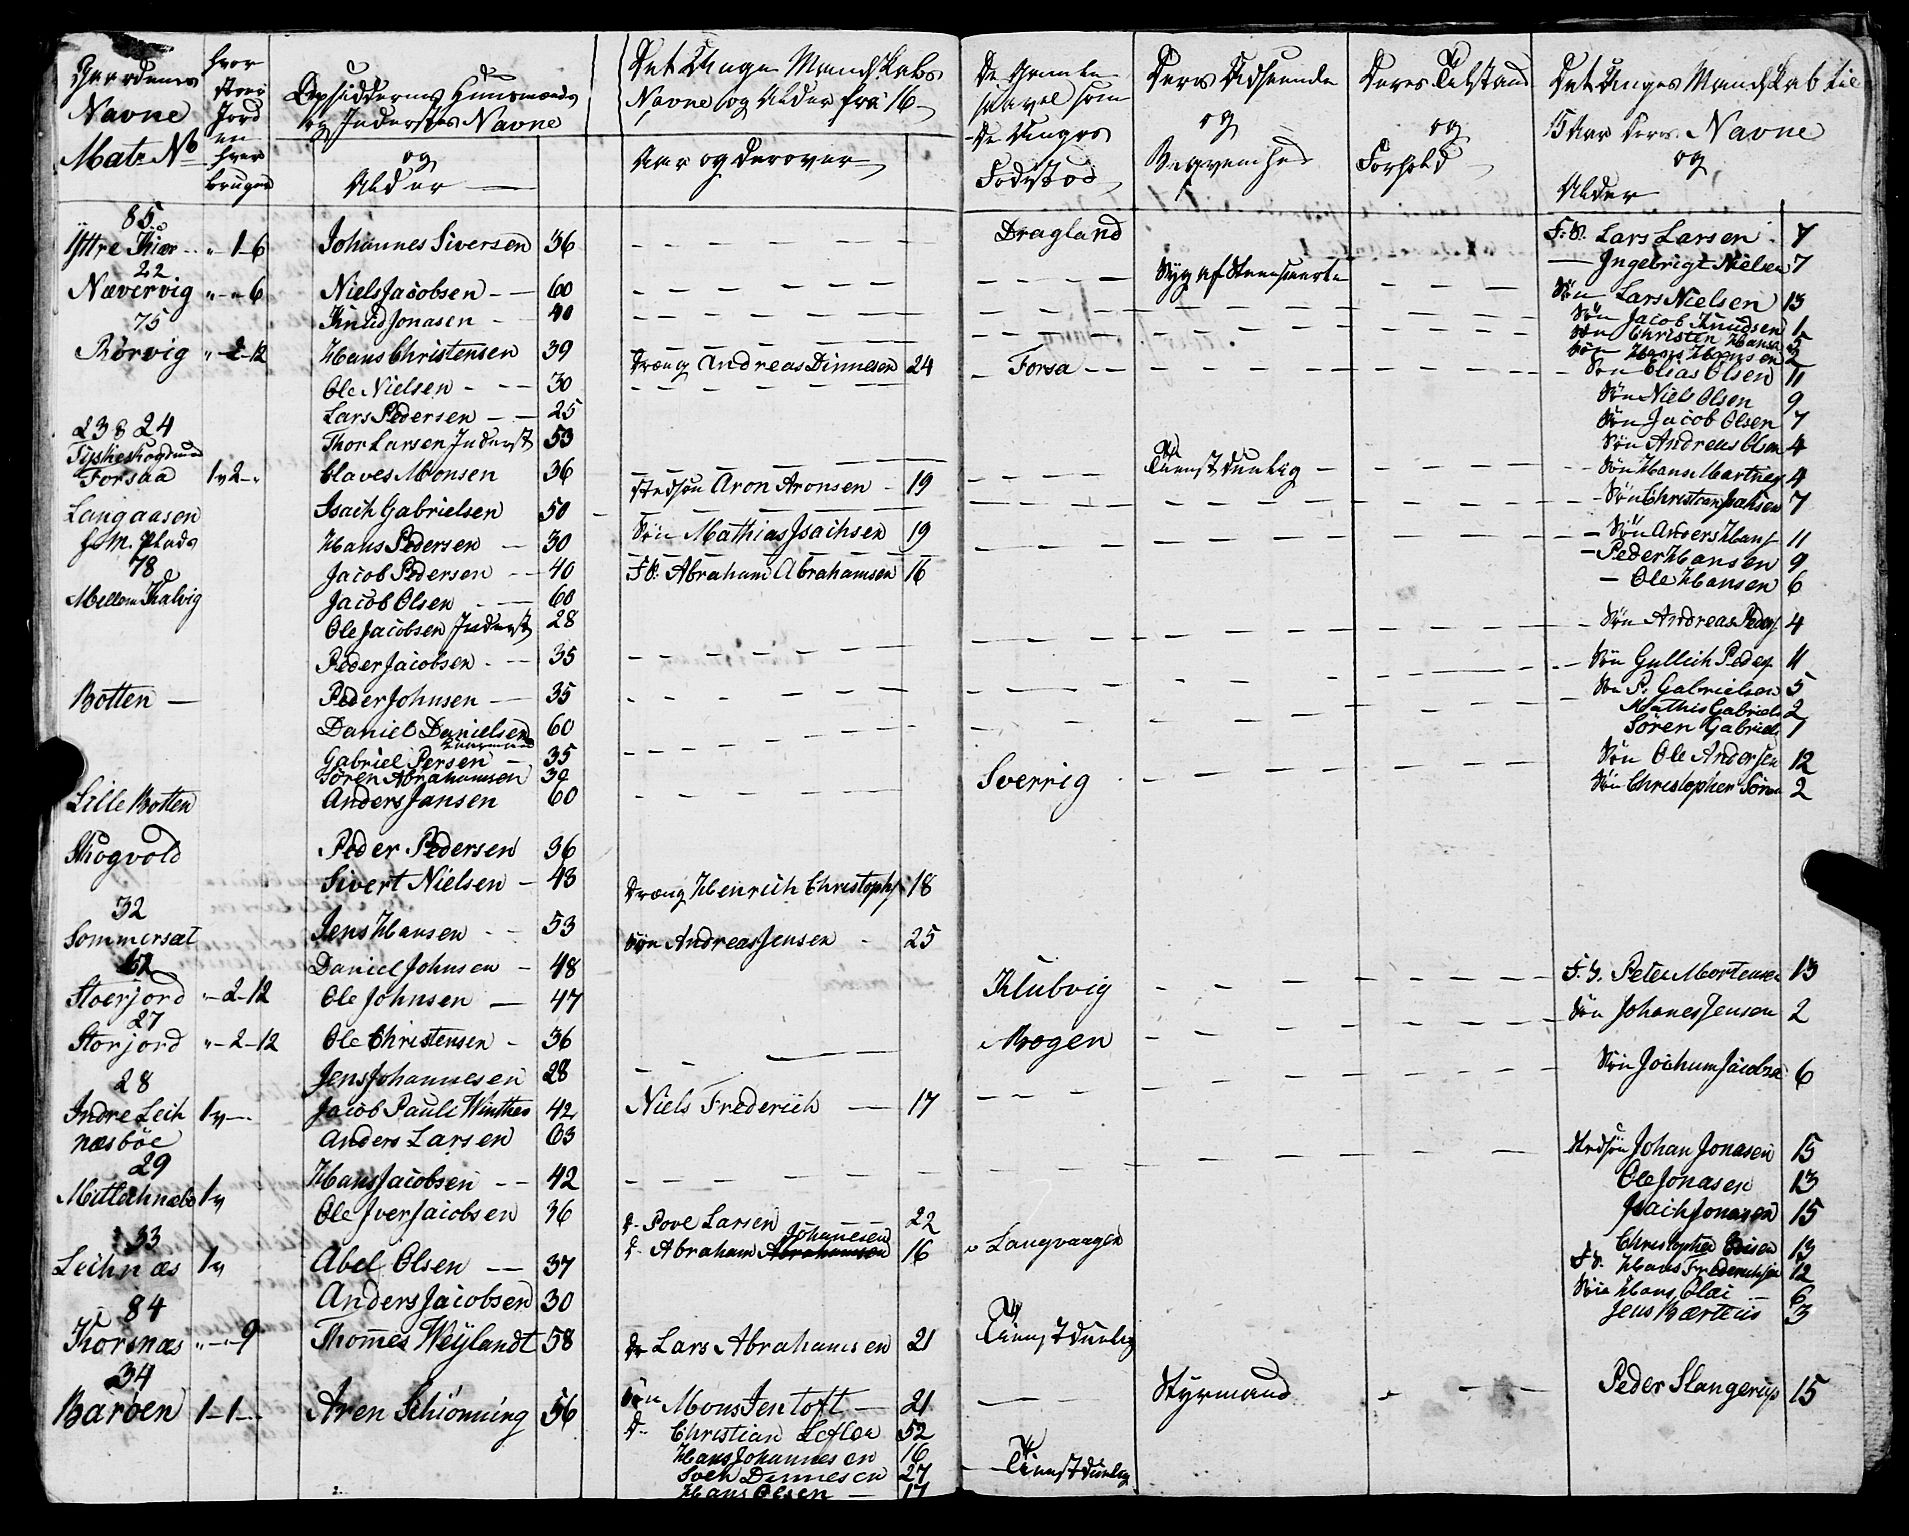 Gaardenes Navne Matr. No
hvor stoer Jord en hver bruger
Opsiddernes Huusmænds og Inderstes Navne
og Alder
Det Unge Mandskabs Navne og Alder fra 16
Aar og derover
De Gamle saavel som De Unges Fødested
Deres Udseende og Beqvemhed
Deres Tilstand og Forhold
Det Unges Mandskab til 15 Aar deres Navne og Alder
85
Yttre Kiær " 1-6 Johannes Siversen 36 Dragland F:S. Lars Larsen 7
Ingebrigt Nielsen 7
22
Nævervig " - " 6 Niels Jacobsen 60 Syg af Steensmerte Søn Lars Nielsen 13
Knud Jonasen 40 Søn Jacob Knudsen 1
75
Rørvig " 2-12 Hans Christensen 39 Dræng Andreas Dinnesen 24 Forsa Søn Christen Hansen 5
Søn Hans Hansen 2
Ole Nielsen 30 Søn Elias Olsen 11
Lars Pedersen 25 Søn Niels Olsen 9
Thor Larsen Inderst 53 Søn Jacob Olsen 7
Søn Andreas Olsen 4
23 & 24
Forsaa 1 v 2 - " Claves Monsen 36 Stedsøn Aron Aronsen 19 Tienstdunlig Søn Hans Martneg 4
Langaasen Isach Gabrielsen 50 Søn Mathias Isachsen 19 Søn Christian Isachsen 7
f. M. Plads Hans Pedersen 30 Søn Anders Hans 11
78 Jacob Pedersen 40 F S. Abraham Abrahamsen 16 Peder Hansen 9
Mellem Kalvig Jacob Olsen 60 Ole Hansen 6
Ole Jacobsen Inderst 28
Peder Jacobsen 35 Søn Andreas Peders 4
Botten Peder Johnsen 35 Søn Gullich Peders 11
Daniel Danielsen 60 Søn P. Gabrielsen 5
Mathis Gabriels 2
Gabriel Persen 35 Søren Gabriels 1
Søren Abrahamsen 32 Søn Ole Andersen 12
Lille Botten Anders Jansen 60 Sverrig Søn Christopher Søren 2
Skogvold Peder Pedersen 36
Sivert Nielsen 43 Dræng Henrich Christophs 18
32
Sommersæt Jens Hansen 53 Søn Andreas Jensen 25
Daniel Johnsen 48
Stoerjord " - 2-12 Ole Johnsen 47 Klubvig F. S. Peter Mortensen 13
27
Storjord " - 2 - 12 Ole Christensen 36 Bogen Søn Johanes Jensen 2
Jens Johannesen 28
28
Indre Leih næsbøe 1 v Jacob Pauli Winther 42 Niels Frederich 17 Søn Jochum Jacobse 6
Anders Larsen 63
29
Hans Jacobsen 42 Stedsøn Johan Jonasen 15
Mitleihnæbø 1 v Ole Iver Jacobsen 36 D- Pove Larsen 22 Ole Jonasen 13
Isach Jonasen 15
33
Leihnæs 1 v Abel Olsen 37 D- Abraham Abrahamsen Johannesen 16 Langvaagen Christopher Evisen 13
F S. Hans Frederichsen 12
Anders Jacobsen 30 Søn Hans Olai 6
Jens Bærteus 3
84
Korsnæs " - " 9 Thommes Weylandt 58 Dr Lars Abrahamsen 21 Tienstdunlig
34
Barøen 1-1- Aren Schiønning 56 Søn Mons Jentoft 21 Styrmand Peder Slangerup 15
D- Christian Lefler 52
Hans Johannesen 16
Soeh Dannesen 27 Tienstdunlig
Hans Olsen 17